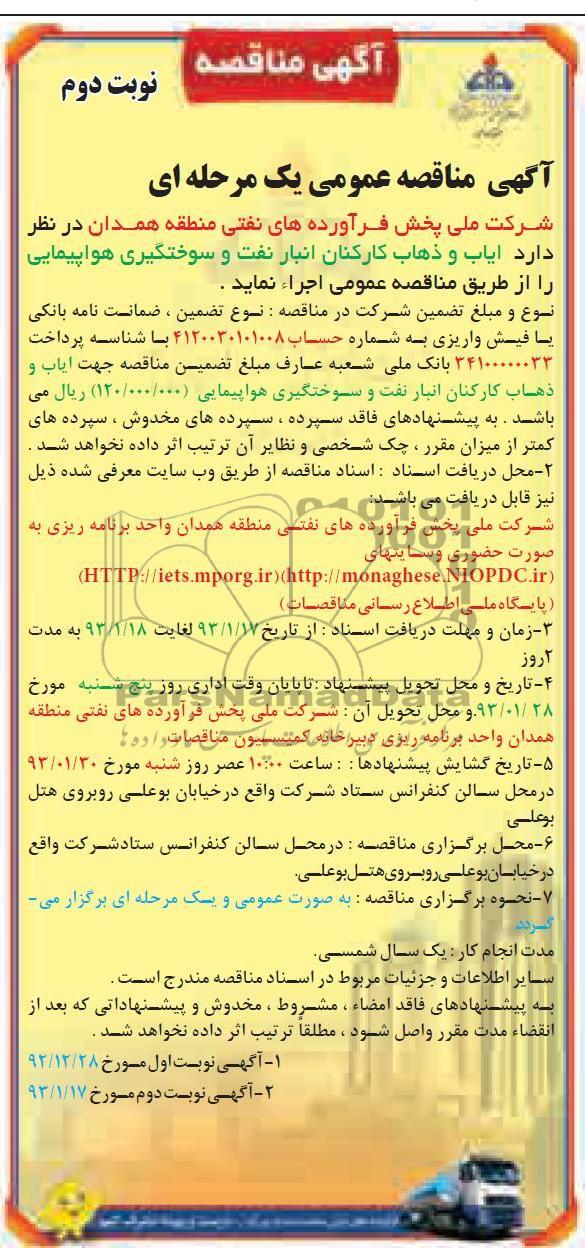 آگهی مناقصه
نوبت دوم
آگهی مناقصه عمومی یک مرحله ای
شرکت ملی پخش فرآورده های نفتی منطقه همدان در نظر
دارد ایاب و ذهاب کارکنان انبار نفت و سوختگیری هواپیمایی
را از طریق مناقصه عمومی اجراء نماید .
نوع و مبلغ تضمین شرکت در مناقصه : نوع تضمین ، ضمانت نامه بانکی
یا فیش واریزی به شماره حساب ۴۱۲۰۰۳۰۱۰۱۰۰۸ با شناسه پرداخت
۳۴۱۰۰۰۰۰۰۳۳ بانک ملی شعبه عارف مبلغ تضمین مناقصه جهت ایاب و
ذهاب کارکنان انبار نفت و سوختگیری هواپیمایی (۱۲۰/۰۰۰/۰۰۰) ریال می
باشد . به پیشنهادهای فاقد سپرده ، سپرده های مخدوش ، سپرده های
کمتر از میزان مقرر ، چک شخصی و نظایر آن ترتیب اثر داده نخواهد شد .
۲-محل دریافت اسناد : اسناد مناقصه از طریق وب سایت معرفی شده ذیل
نیز قابل دریافت می باشد:
شرکت ملی پخش فرآورده های نفتی منطقه همدان واحد برنامه ریزی به
صورت حضوری وسایتهای
(HTTP://iets.mporg.ir)(http://monaghese.NIOPDC.ir)
(پایگاه ملی اطلاع رسانی مناقصات)
۳-زمان و مهلت دریافت اسناد : از تاریخ ۹۳/۱/۱۷ لغایت ۹۳/۱/۱۸ به مدت
۲روز
۴-تاریخ و محل تحویل پیشنهاد :تاپایان وقت اداری روز پنج شنبه مورخ
۹۳/۰۱/ ۲۸.و محل تحویل آن : شرکت ملی پخش فرآورده های نفتی منطقه
همدان واحد برنامه ریزی دبیرخانه کمیسیون مناقصات
۵-تاریخ گشایش پیشنهادها : : ساعت ۱۰:۰۰ عصر روز شنبه مورخ ۹۳/۰۱/۳۰
درمحل سالن کنفرانس ستاد شرکت واقع درخیابان بوعلی روبروی هتل
بوعلی
۶-محل برگزاری مناقصه : درمحل سالن کنفرانس ستادشرکت واقع
درخیابان بوعلی روبروی هتل بوعلی.
۷-نحوه برگزاری مناقصه : به صورت عمومی و یک مرحله ای برگزار می-
گردد.
مدت انجام کار : یک سال شمسی.
سایر اطلاعات و جزئیات مربوط در اسناد مناقصه مندرج است .
به پیشنهادهای فاقد امضاء ، مشروط ، مخدوش و پیشنهاداتی که بعد از
انقضاء مدت مقرر واصل شود ، مطلقاً ترتیب اثر داده نخواهد شد .
۱-آگهی نوبت اول مورخ ۹۲/۱۲/۲۸
۲-آگهی نوبت دوم مورخ ۹۳/۱/۱۷
ParsNamadData